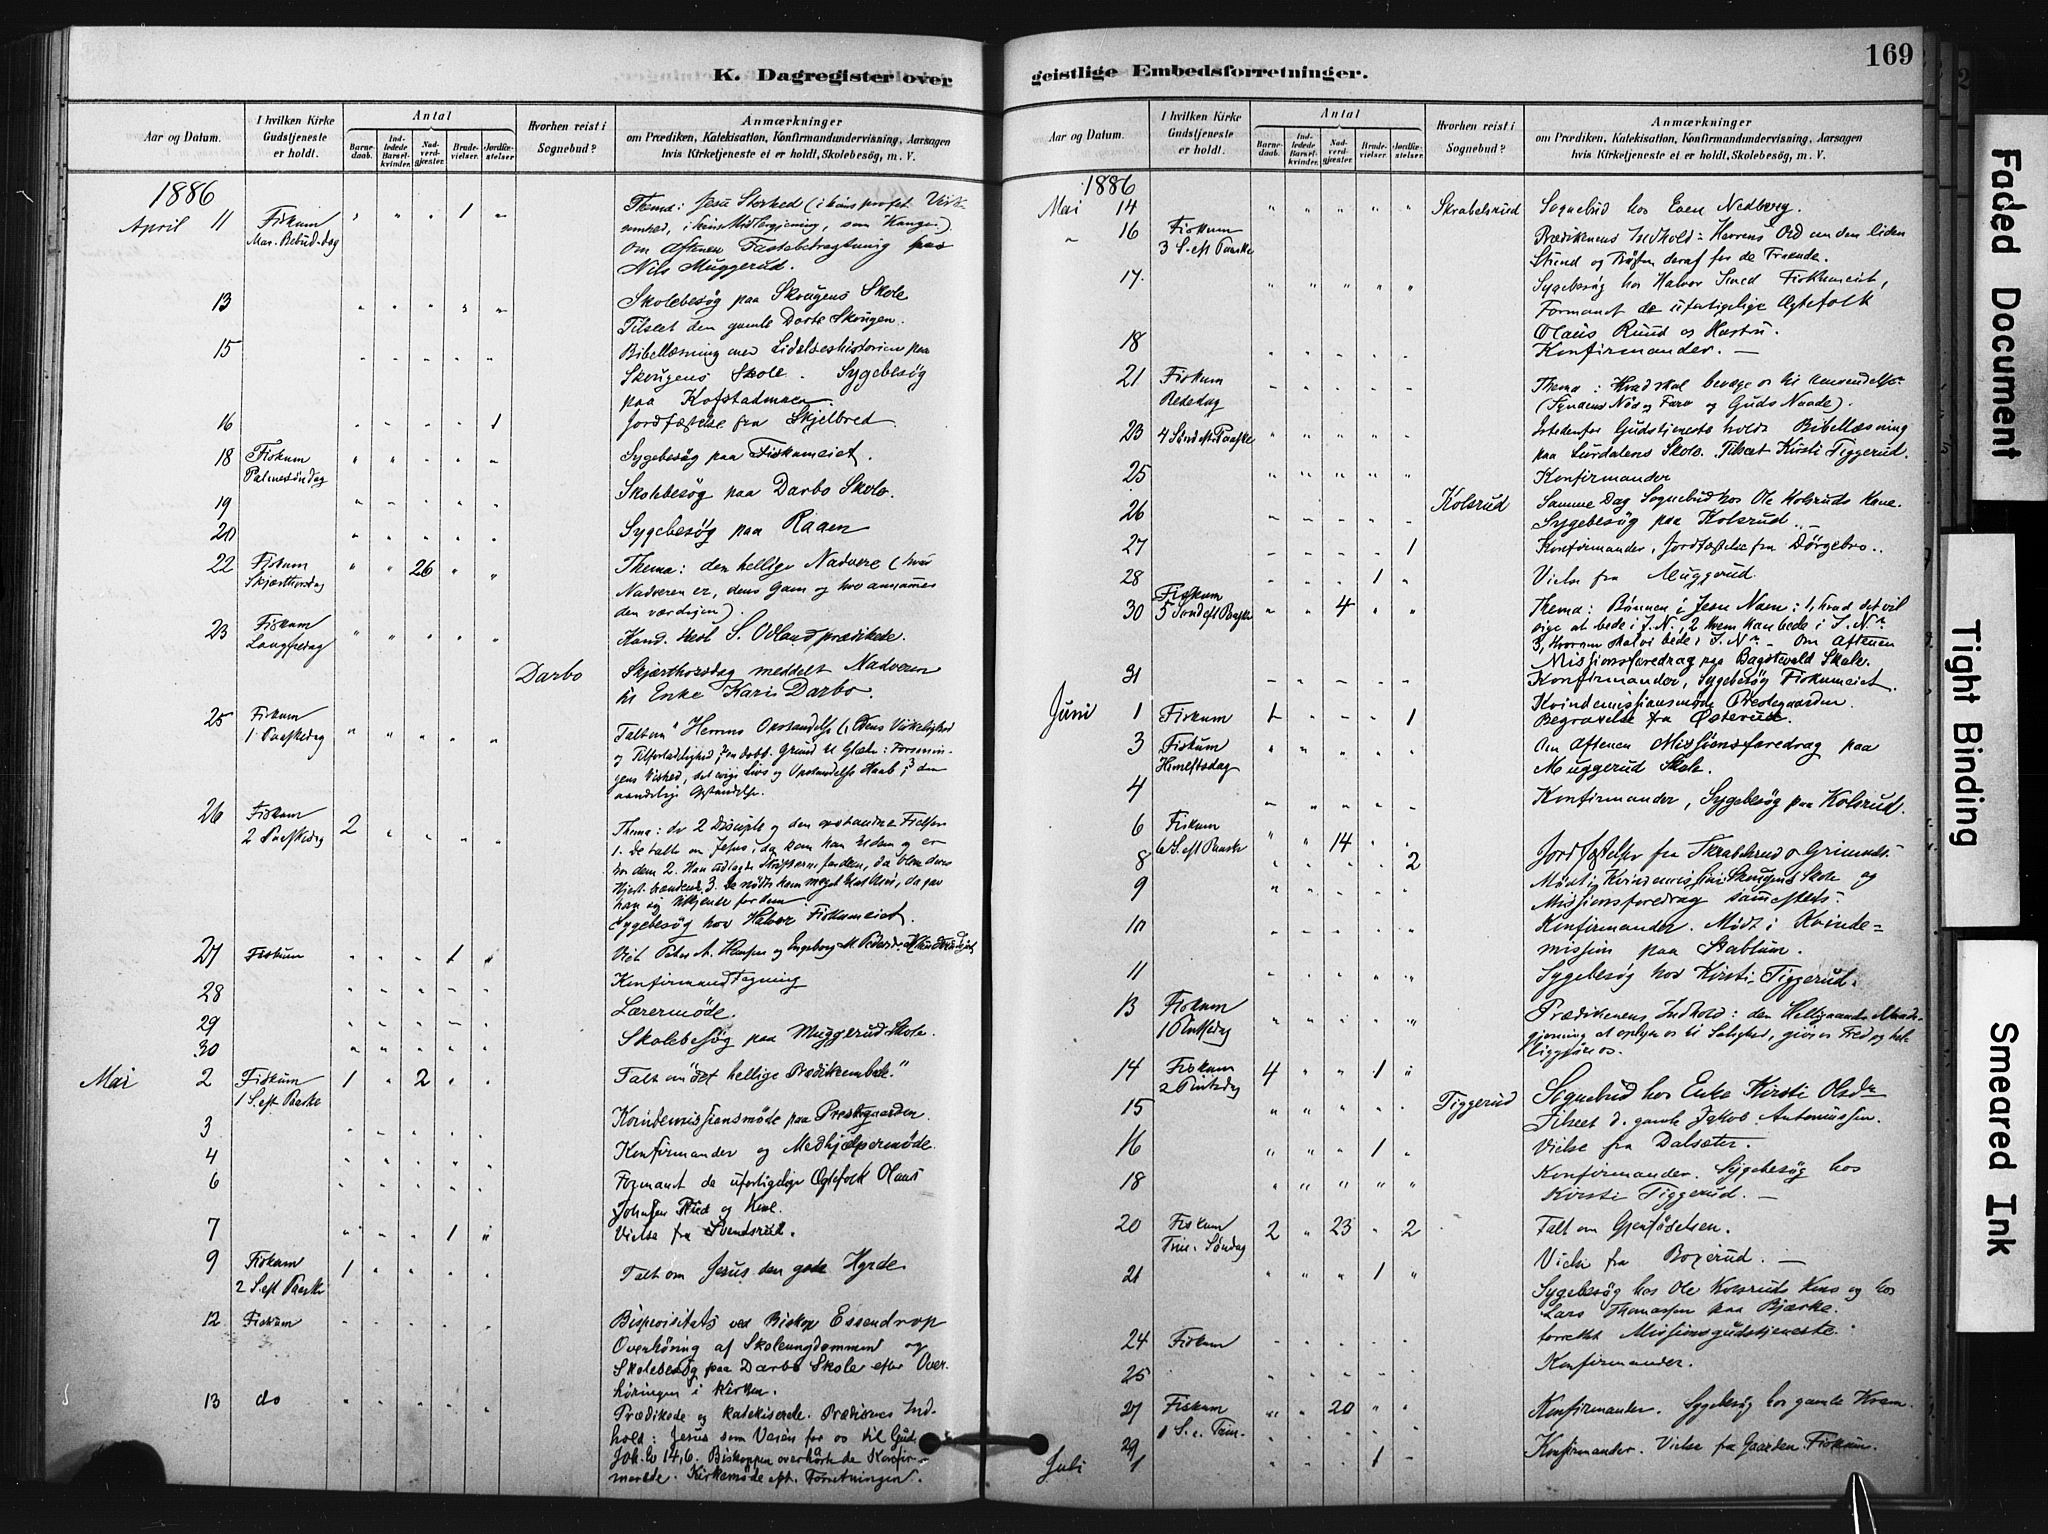 169
K. Dagregister over
geistlige Embedsforretninger.
Aar og Datum.
I hvilken Kirke Gudstjeneste er holdt.
Antal
Barne-daab.
Ind-ledede Barsel-kvinder.
Nad-verd-gjester.
Brude-vielser.
Jordfæ-stelser.
Hvorhen reist i Sognebud?
Anmærkninger
om Prædiken, Katekisation, Konfirmandundervisning, Aarsagen
hvis Kirketjeneste ei er holdt, Skolebesøg, m. V.
1886
April 11 Fiskum 1 Thema: Jesu Storhed (i hans profet. Virk-
Mar. Bebud.dag somhed, i hans Midlergjerning, som Konge).
Om Aftenen Fastebetragtning hos
Nils Muggerud.
13 Skolebesøg paa Skougens Skole
Tilseet den gamle Dorte Skougen.
15 Bibellæsning over Lidelseshistorien paa
Skougens Skole. Sygebesøg
paa Kofstadmoen.
16 1 Jordfæstelse fra Skjelbred
18 Fiskum Sygebesøg paa Fiskumeiet.
Palmesøndag
19 Skolebesøg paa Darbo Skole.
20 Sygebesøg paa Raaen
22 Fiskum 26 Thema: den hellige Nadvere (hvad
Skjærthorsdag Nadveren er, dens Gavn og hvo annammer
den værdigen).
23 Fiskum Kand. theol S. Odland prædikede.
Langfredag
Darbo Skjærthorsdag meddelt Nadveren
til Enke Kari Darbo.
25 Fiskum Talt om Herrens Opstandelse (1, Dens Virkelighed
1. Paaskedag og Tilforladelighed, 2, en dobb. Grund til Glæde: Forsonin-
gens Vished, det evige Livs og Opstandelses Haab, 3 den
aandelige Opstandelse.
26 Fiskum 2 Thema: de 2 Disciple og den opstandne Frelser
2 Paaskedag 1. De talte om Jesus, da kom han til dem og er
hos dem 2. Han udlagde Skrifterne for dem, da blev deres
Hjerte brændende. 3. De nødte ham meget til at blive, da gav
han sig tilkjende for dem.
Sygebesøg hos Halvor Fiskumeiet.
27 Fiskum 1 Viet Peter A. Hansen og Engeborg M. Peders.
28 Konfirmandtagning
29 Lærermøde.
30 Skolebesøg paa Muggerud Skole.
Mai 2 Fiskum 1 2 Talt om "det hellige Prædikembede."
1 S. eft Paaske
3 Kvindemissionsmøde paa Prestegaarden.
4 Konfirmander og Medhjælpermøde.
6 Formanet de uforligelige Ægtefolk Olaus
Johnsen Ruud og Kone.
7 1 Vielse fra Svendsrud.
9 Fiskum 1 Talt om Jesus den gode Hyrde
2 S. eft Paaske
12 Fiskum Bispevisitats ved Biskop Essendrop
Overhøring af Skoleungdommen og
Skolebesøg paa Darbo Skole efter Over-
høringen i Kirken.
13 do Prædikede og katekiserede. Prædikenens Ind-
hold: Jesus som Veien for os til Gud.
Joh. Ev 14,6. Biskoppen overhørte de Konfir-
merede. Kirkemøde eft. Forretningen.
Aar og Datum.
I hvilken Kirke Gudstjeneste er holdt.
Antal
Barne-daab.
Ind-ledede Barsel-kvinder.
Nad-verd-gjester.
Brude-vielser.
Jordfæ-stelser.
Hvorhen reist i Sognebud?
Anmærkninger
om Prædiken, Katekisation, Konfirmandundervisning, Aarsagen
hvis Kirketjeneste ei er holdt, Skolebesøg, m. V.
1886
Mai 14 Skrabelsrud Sognebud hos Even Nedberg.
" 16 Fiskum Prædikenens Indhold: Herrens Ord om den liden
3 S. eft Paaske Stund og Trøsten deraf for de Troende.
17. Sygebesøg hos Halvor Smed Fiskumeiet,
Formanet de uforligelige Ægtefolk
Olaus Ruud og Hustru.
18 Konfirmander. —
21 Fiskum Thema: Hvad skal bevæge os til Omvendelse
Bededag (Syndens Nød og Fare og Guds Naade).
23 4 Sønd eft. Paaske Istedenfor Gudstjeneste holdt Bibellæsning
paa Lurdalens Skole. Tilseet Kirsti Tiggerud.
25 Konfirmander
26 Kolsrud Samme Dag Sognebud hos Ole Kolsruds Kone.
Sygebesøg paa Kolsrud. —
27 1 Konfirmander, Jordfæstelse fra Dørgebro..
28 1 Vielse fra Muggerud.
Fiskum
30 5 Sønd eft Paaske 4 Thema: Bønnen i Jesu Navn: 1, hvad det vil
sige at bede i J. N., 2 hvem kan bede i J. Nn
3, hvorom skal vi bede i J. Nn. - Om Aftenen
Missionsforedrag paa Bagstevold Skole.
31 Konfirmander, Sygebesøg Fiskumeiet.
Kvindemissionsmøde Prestegaarden.
Juni 1 Fiskum 1 1 Begravelse fra Østerud.
3 Fiskum Om Aftenen Missionsforedrag paa
Himelftsdag Muggerud Skole.
4 Konfirmander, Sygebesøg paa Kolsrud.
6 Fiskum 14
6 S. eft Paaske
8 2 Jordfæstelser fra Skrabelsrud o Grinnds.
9 Mødt i Kvindemission i Skougens Skole og
Missionsforedrag sammesteds.
10 Konfirmander. Mødt i Kvinde=
mission paa Stablum.
11 Sygebesøg hos Kirsti Tiggerud.
13 Fiskum Prædikenens Indhold: den Helligaands Naade-
1 Pintsedag gjerning at oplyse os til Salighed, give os Fred og hel-
liggjøre os.
14 Fiskum 4 1
2 Pintsdag
15 Tiggerud Sognebud hos Enke Kirsti Olsdr
Tilseet d. gamle Jakob Antoniussen.
16 1 Vielse fra Dalsæter.
18 Konfirmander. Sygebesøg hos
Kirsti Tiggerud. —
20 Fiskum 2 23 2 Talt om Gjenfødelsen.
Trin. Søndag
21 1 Vielse fra Bogerud. —
Sygebesøg hos Ole Kolsruds Kone og hos
Lars Thomassen paa Bjerke.
24 Fiskum forrettet Missionsgudstjeneste.
25 Konfirmander.
27 Fiskum 20 Konfirmander. Sygebesøg hos gamle
1 S. e. Trin.
29
Juli 1 1 Konfirmander. Vielse fra Gaarden Fiskum.
Faded Document
Tight Binding
Smeared Ink